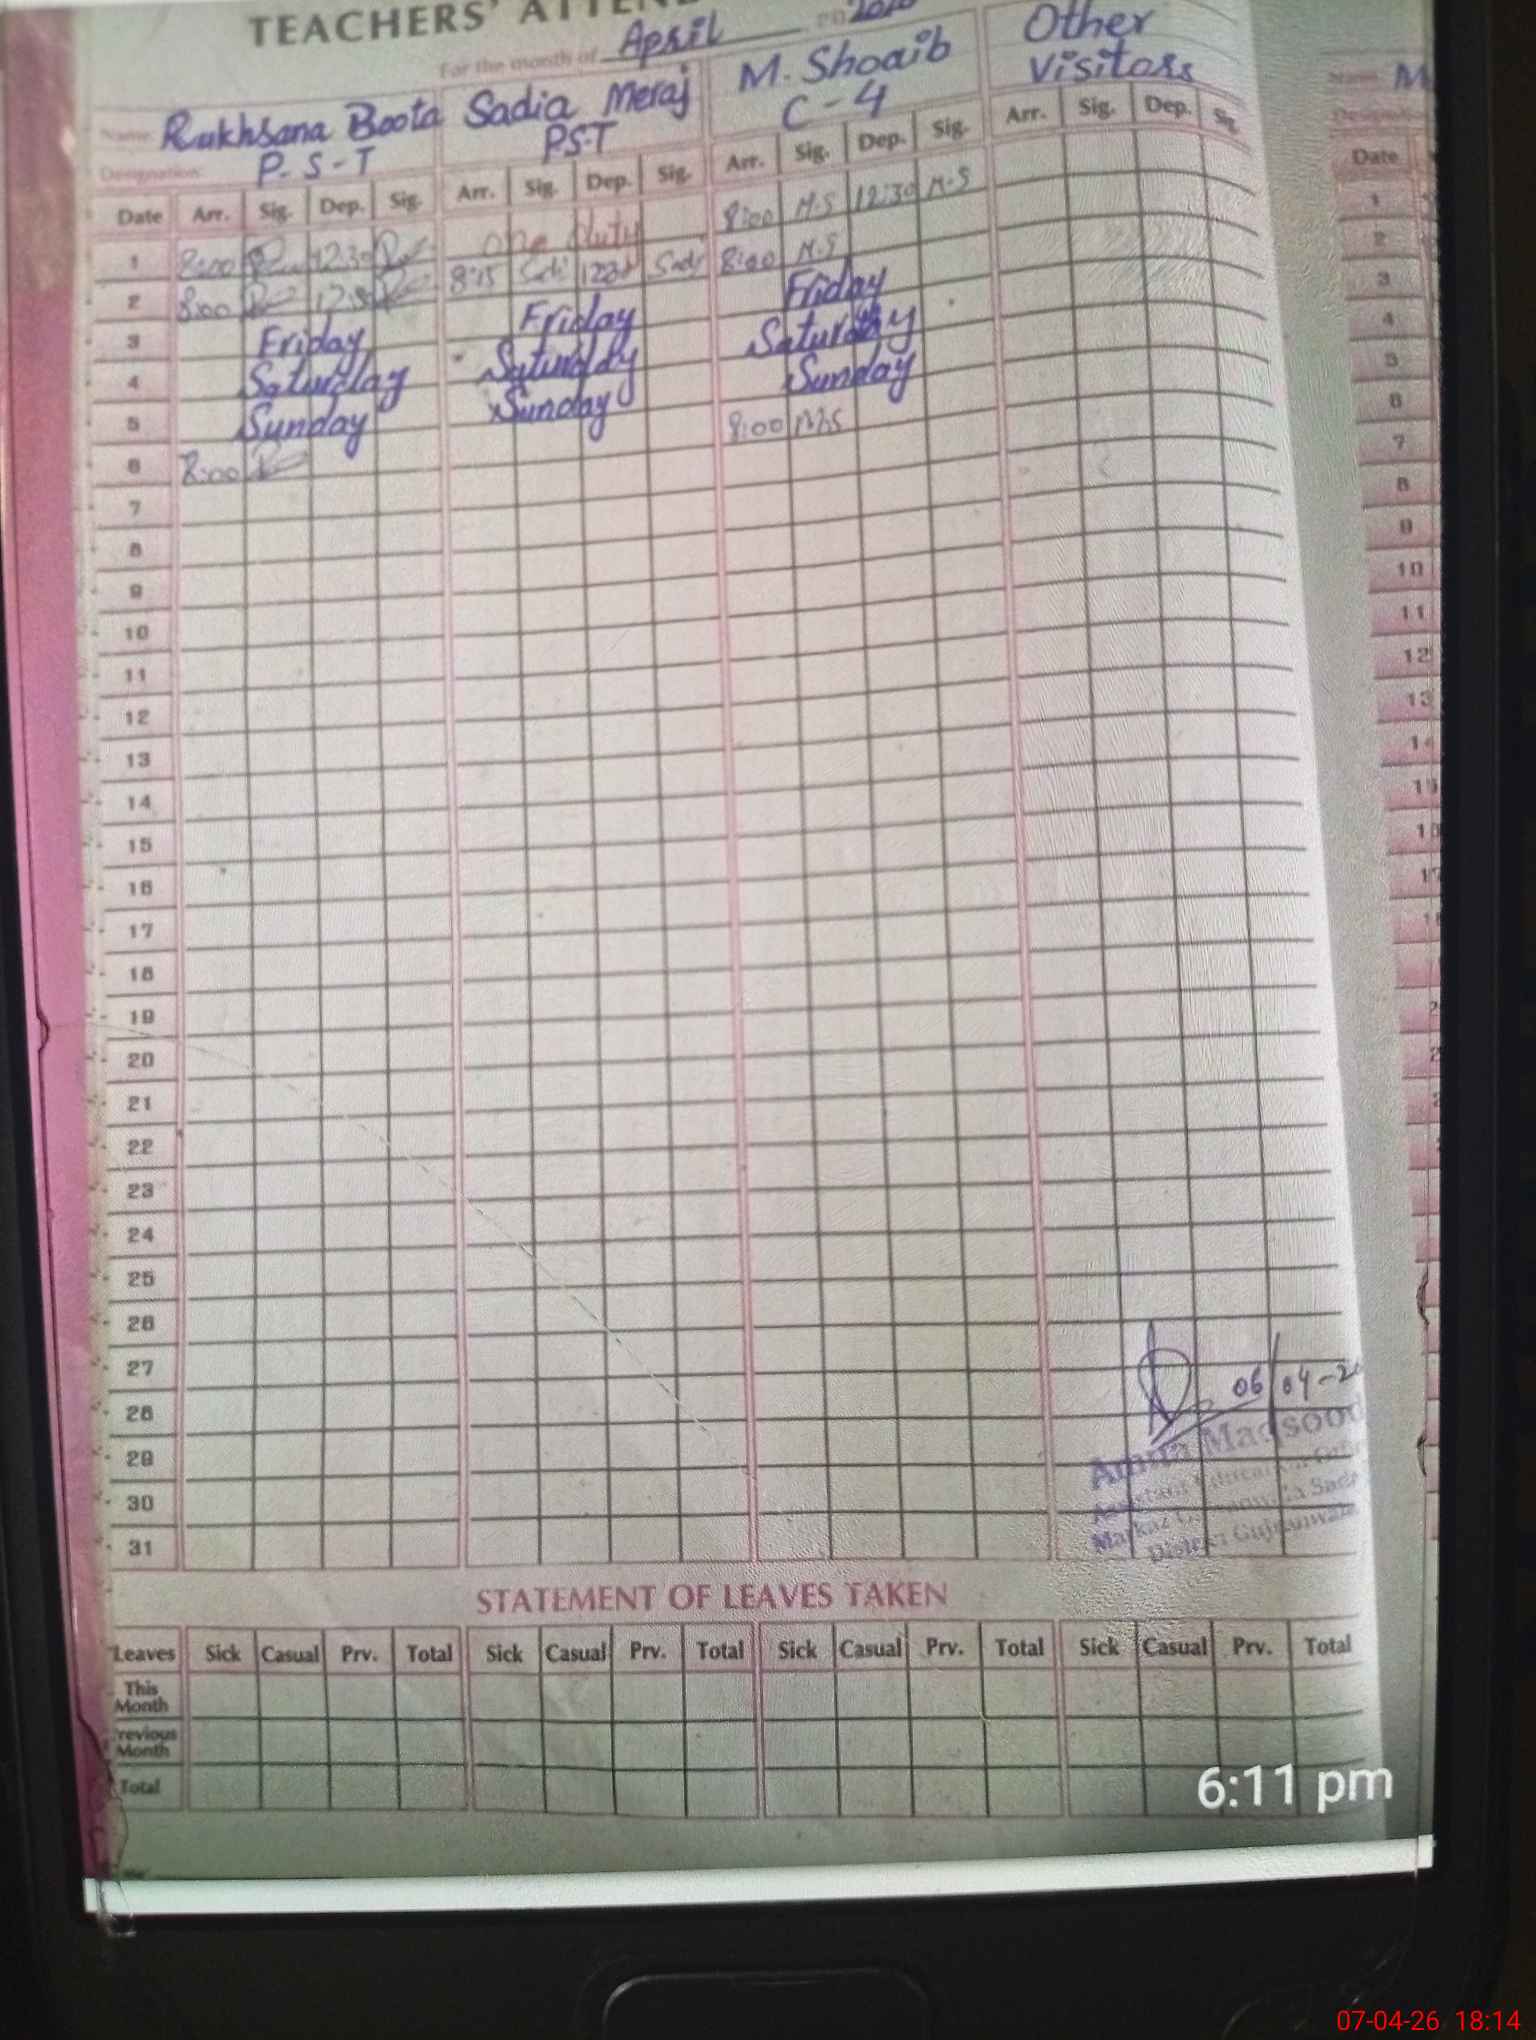 TEACHERS' ATTEN
For the month of April
Name: Rukhsana Boota Sadia Meraj M. Shoaib Other Visitors
Designation: P-S-T PST C-4
Date Arr. Sig. Dep. Sig. Arr. Sig. Dep. Sig. Arr. Sig. Dep. Sig. Arr. Sig. Dep. Sig.
1 8:00 12:30 One Duty 8:00 M.S 12:30 M.S
2 8:00 8:15 8:00 M.S
3 Friday Friday Friday
4 Saturday Saturday Saturday
5 Sunday Sunday Sunday
6 8:00 8:00 M.S
7
8
9
10
11
12
13
14
15
16
17
18
19
20
21
22
23
24
25
26
27
06/04-2
28
29
30
31
Maqsood
Assistant Education
Markaz
District Gujranwala
STATEMENT OF LEAVES TAKEN
Leaves Sick Casual Prv. Total Sick Casual Prv. Total Sick Casual Prv. Total Sick Casual Prv. Total
This Month
Previous Month
Total
Name: M
Date
1
2
3
4
5
6
7
8
9
10
11
12
13
6:11 pm
07-04-26 18:14